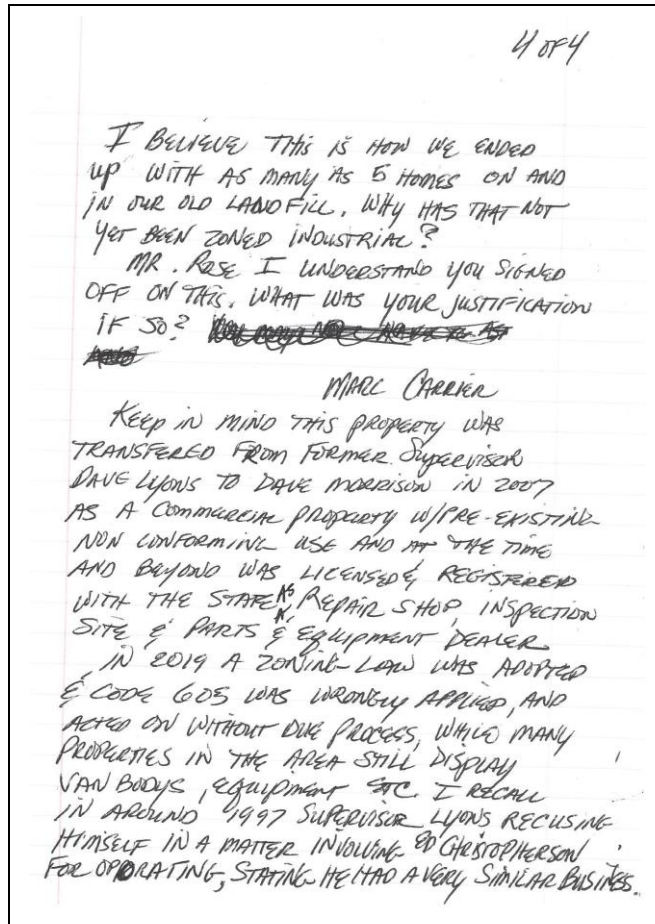 4 OF 4
I BELIEVE THIS IS HOW WE ENDED
UP WITH AS MANY AS 5 HOMES ON AND
IN OUR OLD LANDFILL. WHY HAS THAT NOT
YET BEEN ZONED INDUSTRIAL?
MR. ROSE I UNDERSTAND YOU SIGNED
OFF ON THIS. WHAT WAS YOUR JUSTIFICATION
IF SO?
MARC CARRIER
KEEP IN MIND THIS PROPERTY WAS
TRANSFERED FROM FORMER SUPERVISOR
DAVE LYONS TO DAVE MORRISON IN 2007
AS A COMMERCIAL PROPERTY W/PRE-EXISTING
NON CONFORMING USE AND AT THE TIME
AND BEYOND WAS LICENSED & REGISTERED
WITH THE STATE AS A REPAIR SHOP, INSPECTION
SITE & PARTS & EQUIPMENT DEALER
IN 2019 A ZONING LAW WAS ADOPTED
& CODE 605 WAS WRONGLY APPLIED, AND
ACTED ON WITHOUT DUE PROCESS, WHILE MANY
PROPERTIES IN THE AREA STILL DISPLAY
VAN BODYS, EQUIPMENT ETC. I RECALL
IN AROUND 1997 SUPERVISOR LYONS RECUSING
HIMSELF IN A MATTER INVOLVING ED CHRISTOPHERSON
FOR OPORATING, STATING HE HAD A VERY SIMILAR BUSINESS.